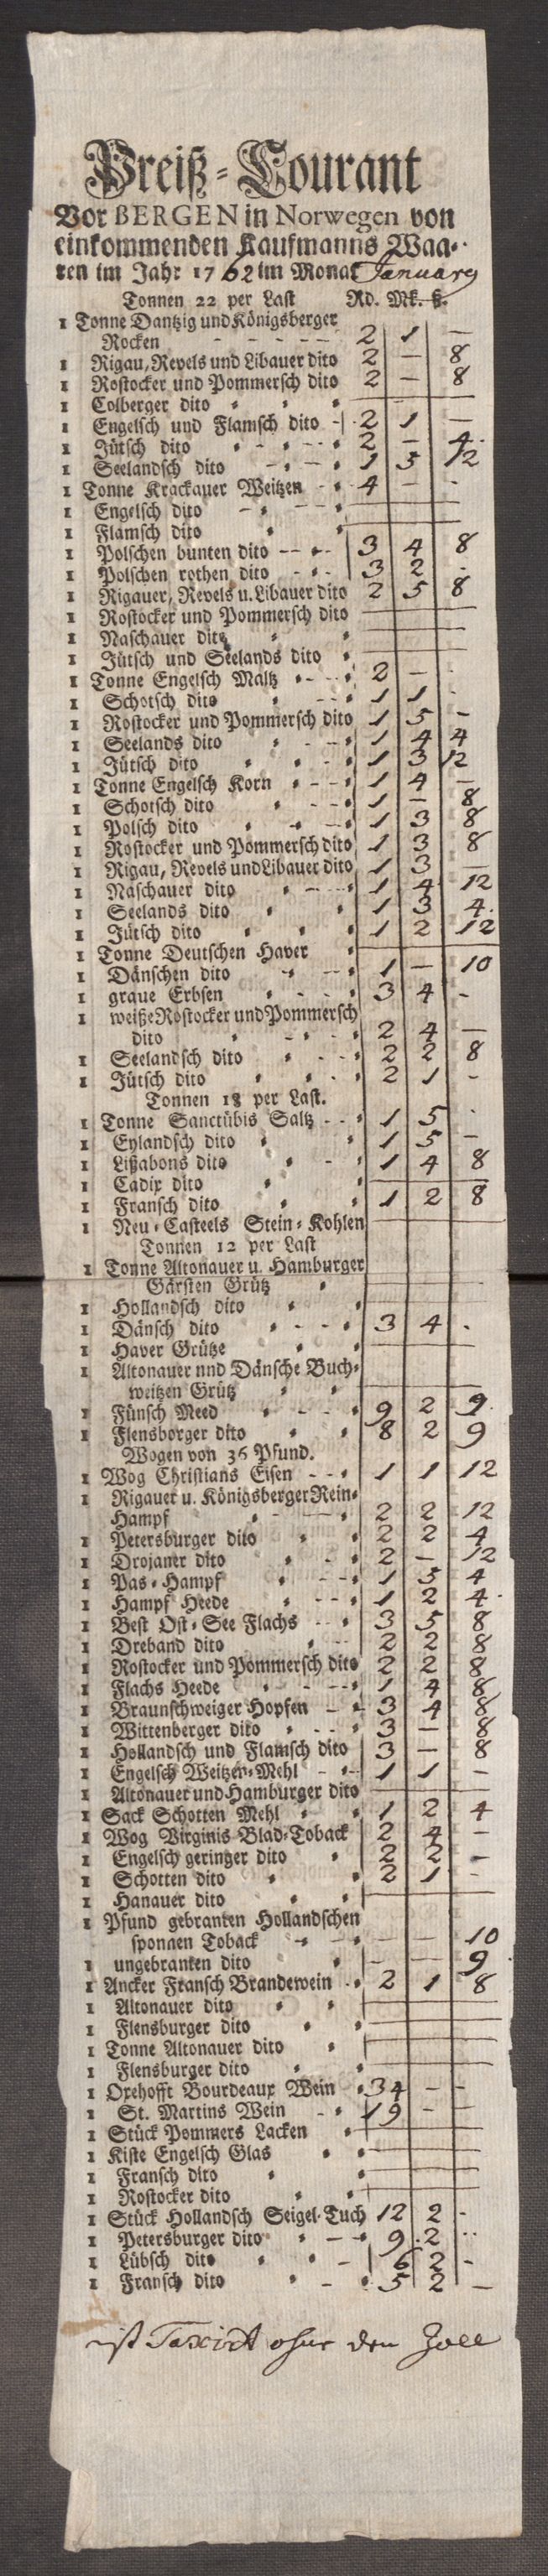 Preiß-Courant
Vor BERGEN in Norwegen von
einkommenden Kaufmanns Waa-
ren im Jahr 1762 im Monat January
Tonnen 22 per Last Rd. Mk. ß.
1 Tonne Dantzig und Königsberger
Rocken 2 1 —
1 Rigau, Revels und Libauer dito 2 — 8
1 Rostocker und Pommersch dito 2 — 8
1 Colberger dito
1 Engelsch und Flamsch dito 2 1 —
1 Jütsch dito 2 — 4
1 Seelandsch dito 1 5 12
1 Tonne Krackauer Weitzen 4 — -
1 Engelsch dito
1 Flamsch dito
1 Polschen bunten dito 3 4 8
1 Polschen rothen dito 3 2 -
1 Rigauer, Revels u. Libauer dito 2 5 8
1 Rostocker und Pommersch dito
1 Naschauer dito
1 Jütsch und Seelands dito
1 Tonne Engelsch Maltz 2 — -
1 Schotsch dito 1 1 -
1 Rostocker und Pommersch dito 1 5 -
1 Seelands dito 1 4 4
1 Jütsch dito 1 3 12
1 Tonne Engelsch Korn 1 4 —
1 Schotsch dito 1 — 8
1 Polsch dito 1 3 8
1 Rostocker und Pommersch dito 1 3 8
1 Rigau, Revels und Libauer dito 1 3 —
1 Naschauer dito 1 4 12
1 Seelands dito 1 3 4
1 Jütsch dito 1 2 12
1 Tonne Deutschen Haver
1 Dänschen dito 1 — 10
1 graue Erbsen 3 4 -
1 weiße Rostocker und Pommersch
dito 2 4 —
1 Seelandsch dito 2 2 8
1 Jütsch dito 2 1 -
Tonnen 18 per Last.
1 Tonne Sanctübis Saltz 1 5 -
1 Eylandsch dito 1 5 —
1 Lißabons dito 1 4 8
1 Cadix dito
1 Fransch dito 1 2 8
1 Neu-Casteels Stein-Kohlen
Tonnen 12 per Last
1 Tonne Altonauer u. Hamburger
Gärsten Grütz
1 Hollandsch dito
1 Dänsch dito 3 4 .
1 Haver Grütze
1 Altonauer nnd Dänsche Buch-
weitzen Grütz
1 Fünsch Meed 9 2 9
1 Flensborger dito 8 2 9
Wogen von 36 Pfund.
1 Wog Christians Eisen 1 1 12
1 Rigauer u. Königsberger Rein-
Hampf 2 2 12
1 Petersburger dito 2 2 4
1 Drojaner dito 2 — 12
1 Pas-Hampf 1 5 4
1 Hampf Heede 1 2 4
1 Best Ost-See Flachs 3 5 8
1 Dreband dito 2 2 8
1 Rostocker und Pommersch dito 2 2 8
1 Flachs Heede 1 4 8
1 Braunschweiger Hopfen 3 4 8
1 Wittenberger dito 3 — 8
1 Hollandsch und Flamsch dito 3 — 8
1 Engelsch Weitzen-Mehl 1 1 -
1 Altonauer und Hamburger dito
1 Sack Schotten Mehl 1 2 4
1 Wog Virginis Blad-Toback 2 4 -
1 Engelsch geringer dito 2 2 -
1 Schotten dito 2 1 -
1 Hanauer dito
1 Pfund gebranten Hollandschen
sponnen Toback — — 10
1 ungebranten dito — — 9
1 Ancker Fransch Brandewein 2 1 8
1 Altonauer dito
1 Flensburger dito
1 Tonne Altonauer dito
1 Flensburger dito
1 Oxehofft Bourdeaux Wein 34 - -
1 St. Martins Wein 19 - -
1 Stück Pommers Lacken
1 Kiste Engelsch Glas
1 Fransch dito
1 Rostocker dito
1 Stück Hollandsch Seigel-Tuch 12 2 -
1 Petersburger dito 9 2 -
1 Lübsch dito 6 2 -
1 Fransch dito 5 2 —
ist Taxirt ohne den Zoll